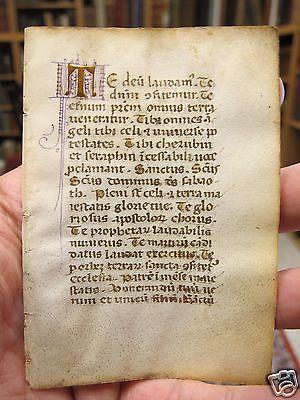 TE deū laudam⁹. Te
dn̄m ɔfitemur. Te
eternum prem omnis terra
ueneratur. Tibi omnes a
geli tibi celi & uniuerse p
testates. Tibi cherubin
et seraphin īcessabili uoce
pclamant. Sanctus. Scūs
Scūs dominus ds sabao
th. Pleni st celi & terra ma
iestatis glorie tue. Te glo
riosus apostolor chorus.
Te prophetar laudabilis
numerus. Te martirū cādi
datus laudat exercitus. Te
per orbez terrar sancta ɔfitet
ecclesia. Patrē īmēse maie
statis. Uenerandū tuū ue
rum et unicū filiū. Sanctū